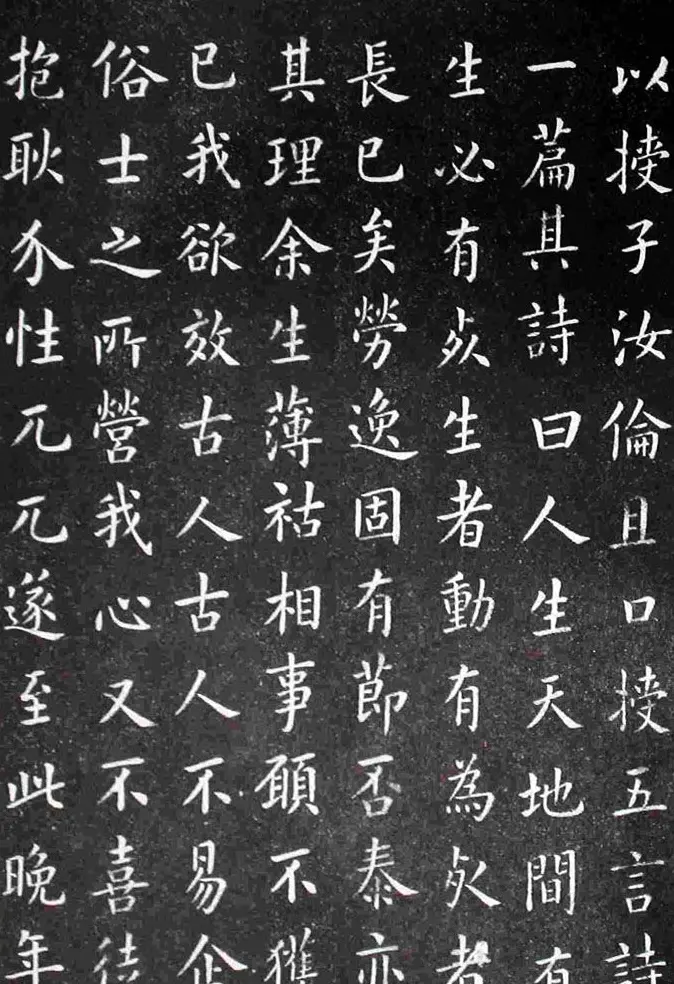 以授子汝倫且口授五言詩
一篇其詩曰人生天地間有
生必有死生者動有為死者
長已矣勞逸固有節否泰亦
其理余生薄祜相事願不獲
已我欲效古人古人不易企
俗士之所營我心又不喜徒
抱耿介性兀兀遂至此晚年